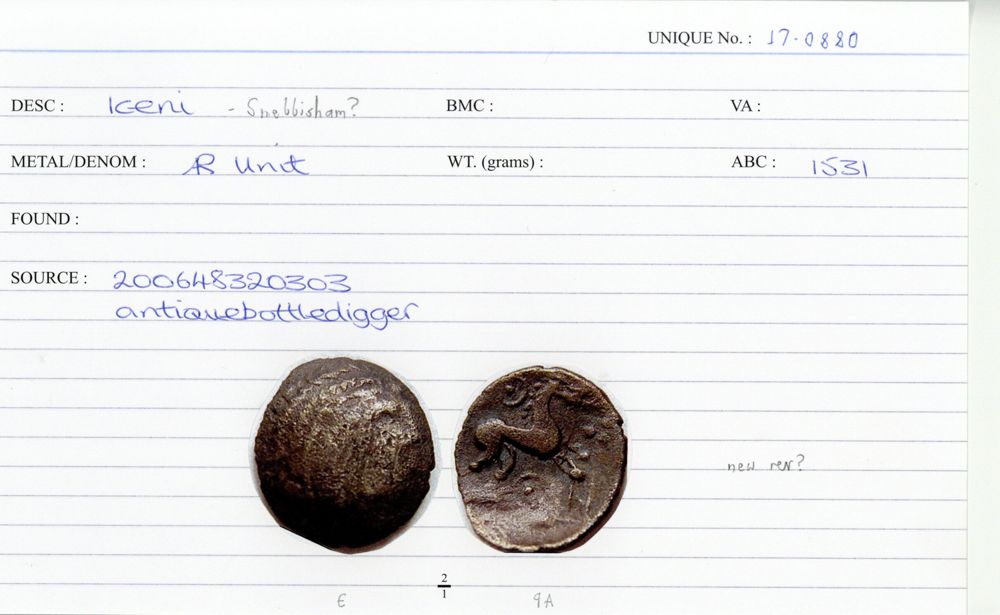 UNIQUE No. : 17-0880
DESC : Iceni - Snebbisham? BMC : VA :
METAL/DENOM : AR Unit WT. (grams) : ABC : 1531
FOUND :
SOURCE : 200648320303
antiquebottledigger
new rev?
2
1
E 9A